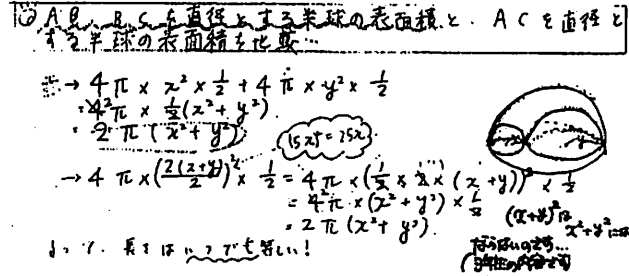 AB、BCを直径とする半球の表面積と、ACを直径と
する半球の表面積を比較…
→ 4π × x² × 1/2 + 4π × y² × 1/2
= 4π × 1/2 (x² + y²)
= 2π (x² + y²)
(5x)² = 25x
→ 4π × (2(x+y)/2)² × 1/2 = 4π × (1/2 × 2 × (x + y))² × 1/2
= 4π × (x² + y²) × 1/2
= 2π (x² + y²)
よって、長さはいつでも等しい!
(x+y)²は
x²+y²には
ならないのです…
x
y